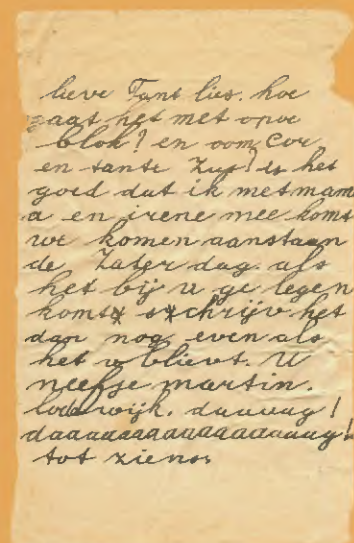 lieve Tant lies. hoe
gaat het met opve
blok? en oom Cor
en tante Zus? is het
goed dat ik met mam
a en irene mee komt
we komen aanstaan
de Zater dag. als
het bij u ge legen
komt schrijv. het
dan nog even als
het u blieft. U
neefje martin.
lodewijk. daaaag!
daaaaaaaaaaaaaaaag!
tot ziens.